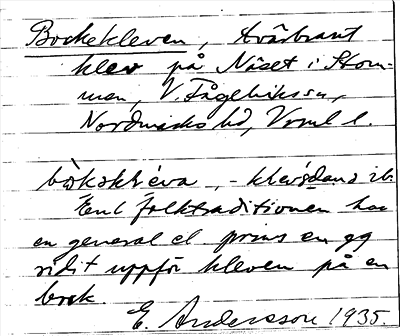 Bockekleven, tvärbrant
klev på Näset i Stom-
men, V. Fågelviks sn,
Nordmarks hd, Vrml l.
bòkəkléva, - klevsdans ib.
Enl folktraditionen har
en general el. prins en gg
ridit uppför kleven på en
bock.
E. Andersson 1935.